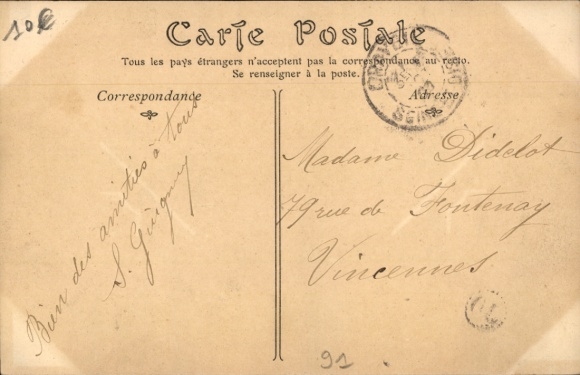 10€
Carte Postale
Tous les pays étrangers n'acceptent pas la correspondance au recto.
Se renseigner à la poste.
Correspondance
Adresse
Bien des amitiés à tous
S.
Madame Didelot
79 rue de Fontenay
Vincennes
91